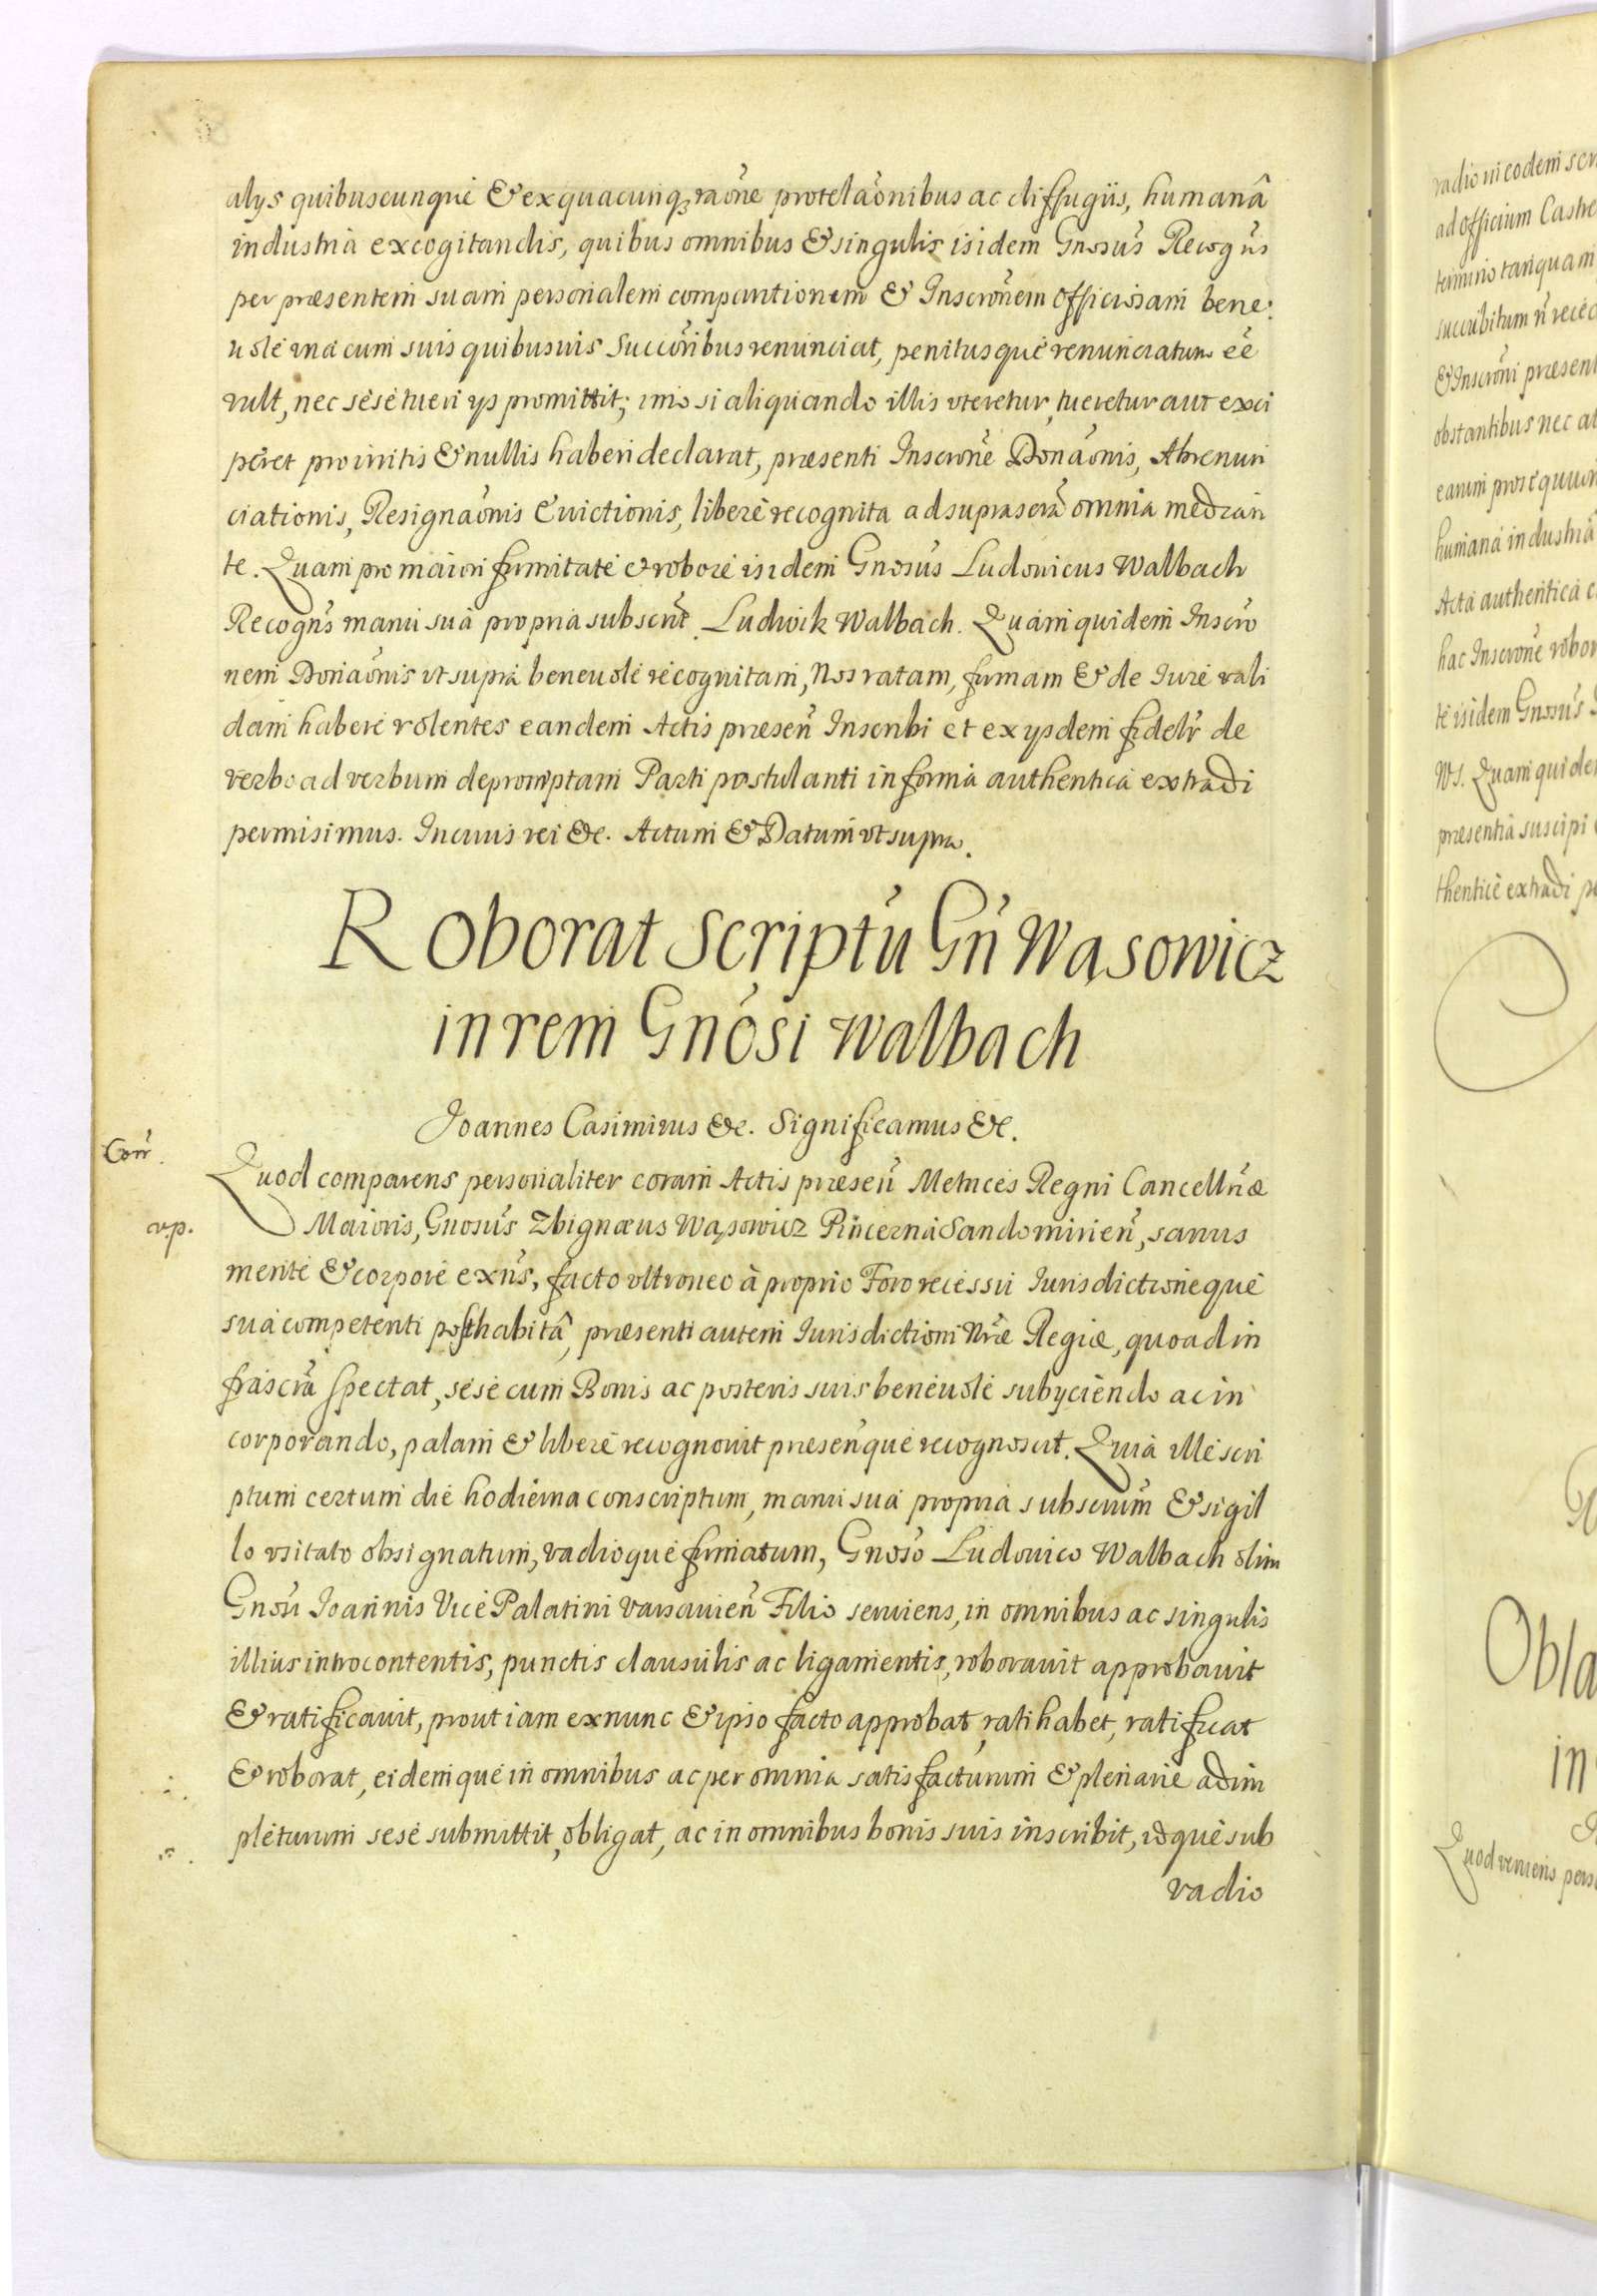 alys quibuscunque & ex quacunq; raõne protelaõnibus ac diffugiis, humanâ
industria excogitandis, quibus omnibus & singulis isidem Gnosus Recogns
per præsentem suam personalem comparitionem & Inscrõnem officiosam bene:
uole una cum suis quibusuis Succoribus renunciat, penitusque renunciatum eẽ
vult, nec sese tueri ys promittit; imo si aliquando illis vteretur, tueretur aut exci
peret pro iritis & nullis haberi declarat, præsenti Inscrone Donaõnis, Abrenun
ciationis, Resignaõnis Euictionis, libere recognita ad suprascra omnia median
te. Quam pro maiori firmitate & robore isidem Gnosus Ludouicus Walbach
Recogns manu sua propria subscrit. Ludwik Walbach. Quam quidem Inscro
nem Donaõnis vt supra beneuole recognitam, Nos ratam, firmam & de Iure vali
dam habere volentes eandem Actis præsen Inscribi et ex ysdem fidelr de
verbo ad verbum depromptam Parti postulanti in forma authentica extradi
permisimus. In cuius rei &c. Actum & Datum vt supra.
Roborat Scriptũ Gñ Wąsowicz
in rem Gnosi Walbach
Joannes Casimirus &c. Significamus &c.
Corr.
Quod comparens personaliter coram Actis præsen Metrices Regni Cancellriæ
Maioris, Gnosus Zbignæus Wąsowicz Pincerna Sandomirien, sanus
mente & corpore exns, facto vltroneo à proprio Foro recessu Iurisdictioneque
sua competenti posthabitâ, præsenti autem Iurisdictioni Nræ Regiæ, quoad in
frascra spectat, sese cum Bonis ac posteris suis beneuole subyciendo ac in
corporando, palam & libere recognouit præsenque recognoscit. Quia ille scri
ptum certum die hodierna conscriptum, manu sua propria subscrum & sigil
lo vsitato obsignatum, vadioque firmatum, Gnoso Ludouico Walbach olim
Gnosi Joannis Vice Palatini Varsauien Filio seruiens, in omnibus ac singulis
illius introcontentis, punctis clausulis ac ligamentis, roborauit approbauit
& ratificauit, prout iam ex nunc & ipso facto approbat, ratihabet, ratificat
& roborat, eidemque in omnibus ac per omnia satisfacturum & plenarie adim
pleturum sese submittit, obligat, ac in omnibus bonis suis inscribit, idque sub
vadio
vadio in eodem scri
ad officium Castre
termino tanquam
succubitum ñ rece
& Inscroni præsent
obstantibus nec
earum prosequu
humana industria
Acta authentica
hac Inscrone robor
te isidem Gnosus
Ws. Quam quide
præsentia suscipi
thentice extradi
Obla
in
Quod veniens pers